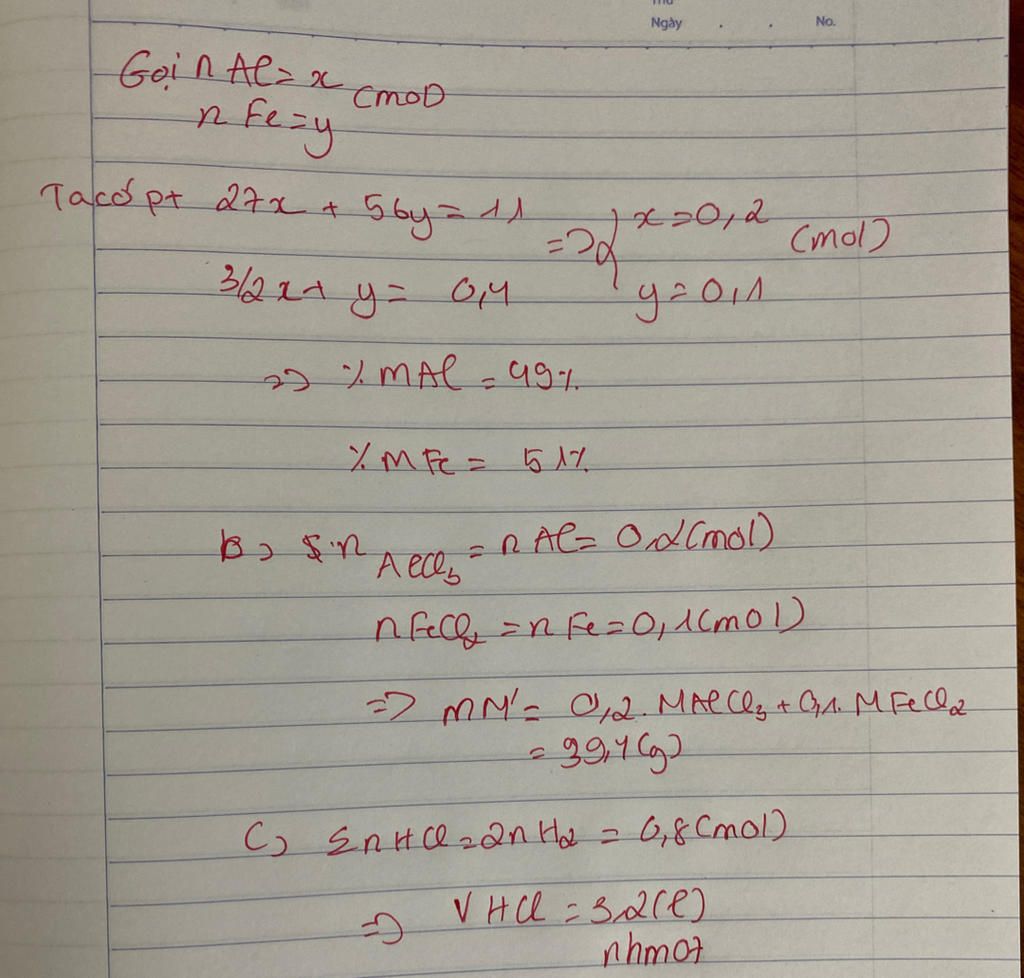 Ngày . . No.
Gọi n Al = x (mol)
n Fe = y
Ta có pt 27x + 56y = 11 => { x = 0,2 (mol)
3/2x + y = 0,4 y = 0,1
=> % mAl = 49%
% m Fe = 51%
B) n AlCl3 = n Al = 0,2 (mol)
n FeCl2 = n Fe = 0,1 (mol)
=> m M' = 0,2 . MAlCl3 + 0,1 . M FeCl2
= 39,4 (g)
C) Σn HCl = 2n H2 = 0,8 (mol)
=> V HCl = 3,2 (l)